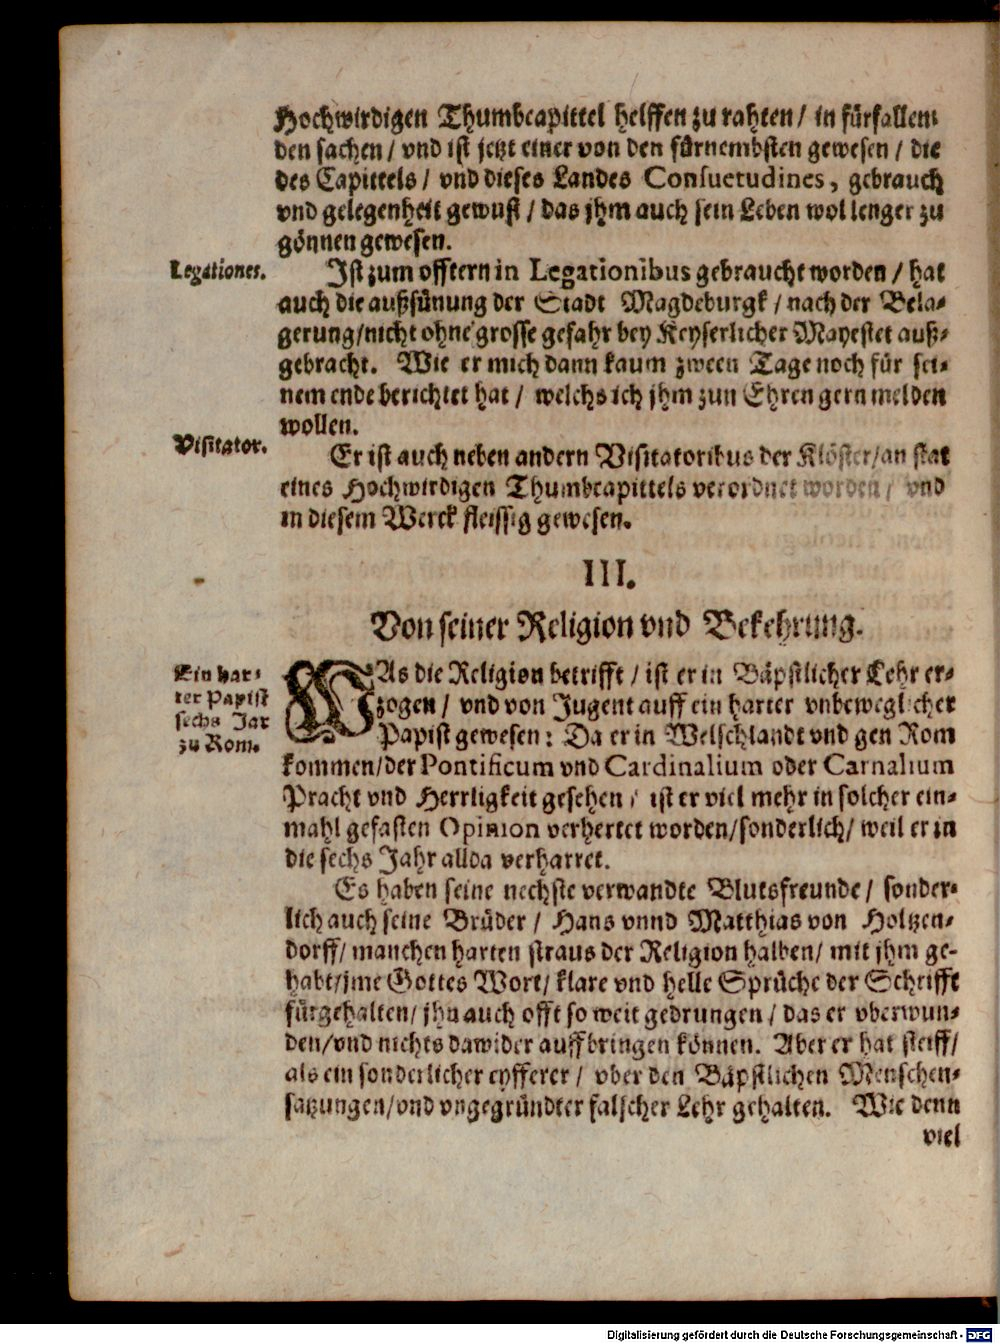 Hochwirdigen Thumbcapittel helffen zu rahten / in fürfallen-
den sachen / vnd ist jetzt einer von den fürnembsten gewesen / die
des Capittels / vnd dieses Landes Consuetudines, gebrauch
vnd gelegenheit gewust / das jhm auch sein Leben wol lenger zu
gönnen gewesen.
Legationes.
Ist zum offtern in Legationibus gebraucht worden / hat
auch die außsünung der Stadt Magdeburgk / nach der Bela-
gerung/nicht ohne grosse gefahr bey Keyserlicher Mayestet auß-
gebracht. Wie er mich dann kaum zween Tage noch für sei-
nem ende berichtet hat / welchs ich jhm zun Ehren gern melden
wollen.
Visitator.
Er ist auch neben andern Visitatoribus der Klöster/an stat
eines Hochwirdigen Thumbcapittels verordnet worden / vnd
in diesem Werck fleissig gewesen.
III.
Von seiner Religion vnd Bekehrung.
Ein har-
ter Papist
sechs Jar
zu Rom.
WAs die Religion betrifft / ist er in Bäpstlicher Lehr er-
zogen / vnd von Jugent auff ein harter vnbeweglicher
Papist gewesen: Da er in Welschlandt vnd gen Rom
kommen/der Pontificum vnd Cardinalium oder Carnalium
Pracht vnd Herrligkeit gesehen / ist er viel mehr in solcher ein-
mahl gefasten Opinion verhertet worden/sonderlich/ weil er in
die sechs Jahr allda verharret.
Es haben seine nechste verwandte Blutsfreunde / sonder-
lich auch seine Brüder / Hans vnnd Matthias von Holtzen-
dorff/ manchen harten straus der Religion halben/ mit jhm ge-
habt/jme Gottes Wort/ klare vnd helle Sprüche der Schrifft
fürgehalten/ jhn auch offt so weit gedrungen / das er vberwun-
den/vnd nichts dawider auffbringen können. Aber er hat steiff/
als ein sonderlicher eyfferer / vber den Bäpstlichen Menschen-
satzungen/vnd vngegründter falscher Lehr gehalten. Wie denn
viel
Digitalisierung gefördert durch die Deutsche Forschungsgemeinschaft - DFG